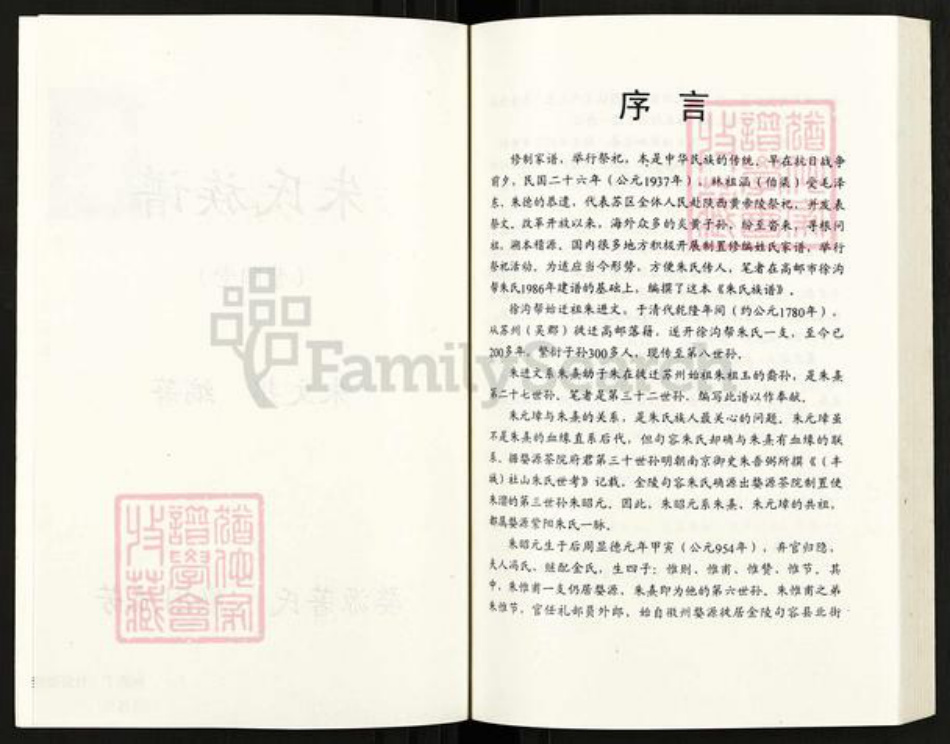 序 言
修制家谱，举行祭祀，本是中华民族的传统，早在抗日战争
前夕，民国二十六年（公元1937年），林祖涵（伯渠）受毛泽
东、朱德的恭遣，代表苏区全体人民赴陕西黄帝陵祭祀，并发表
祭文。改革开放以来，海外众多的炎黄子孙，纷至沓来，寻根问
祖，溯本穷源。国内很多地方积极开展制置修编姓氏家谱，举行
祭祀活动。为适应当今形势，方便朱氏传人，笔者在高邮市徐沟
帮朱氏1986年建谱的基础上，编撰了这本《朱氏族谱》。
徐沟帮始迁祖朱进文，于清代乾隆年间（约公元1780年），
从苏州（吴郡）徙迁高邮落籍，遂开徐沟帮朱氏一支，至今已
200多年，繁衍子孙300多人，现传至第八世孙。
朱进文系朱熹幼子朱在徙迁苏州始祖朱祖玉的裔孙，是朱熹
第二十七世孙。笔者是第三十二世孙，编写此谱以作奉献。
朱元璋与朱熹的关系，是朱氏族人最关心的问题。朱元璋虽
不是朱熹的血缘直系后代，但句容朱氏却确与朱熹有血缘的联
系。据婺源茶院府君第三十世孙明朝南京御史朱吾弼所撰《（丰
城）社山朱氏世考》记载，金陵句容朱氏确源出婺源茶院制置使
朱瓌的第三世孙朱昭元。因此，朱昭元系朱熹、朱元璋的共祖，
都属婺源紫阳朱氏一脉。
朱昭元生于后周显德元年甲寅（公元954年），弃官归隐，
夫人冯氏、继配金氏，生四子：惟则、惟甫、惟贤、惟节。其
中，朱惟甫一支仍居婺源，朱熹即为他的第六世孙。朱惟甫之弟
朱惟节，官任礼部员外郎，始自徽州婺源徙居金陵句容县北街
FamilySearch